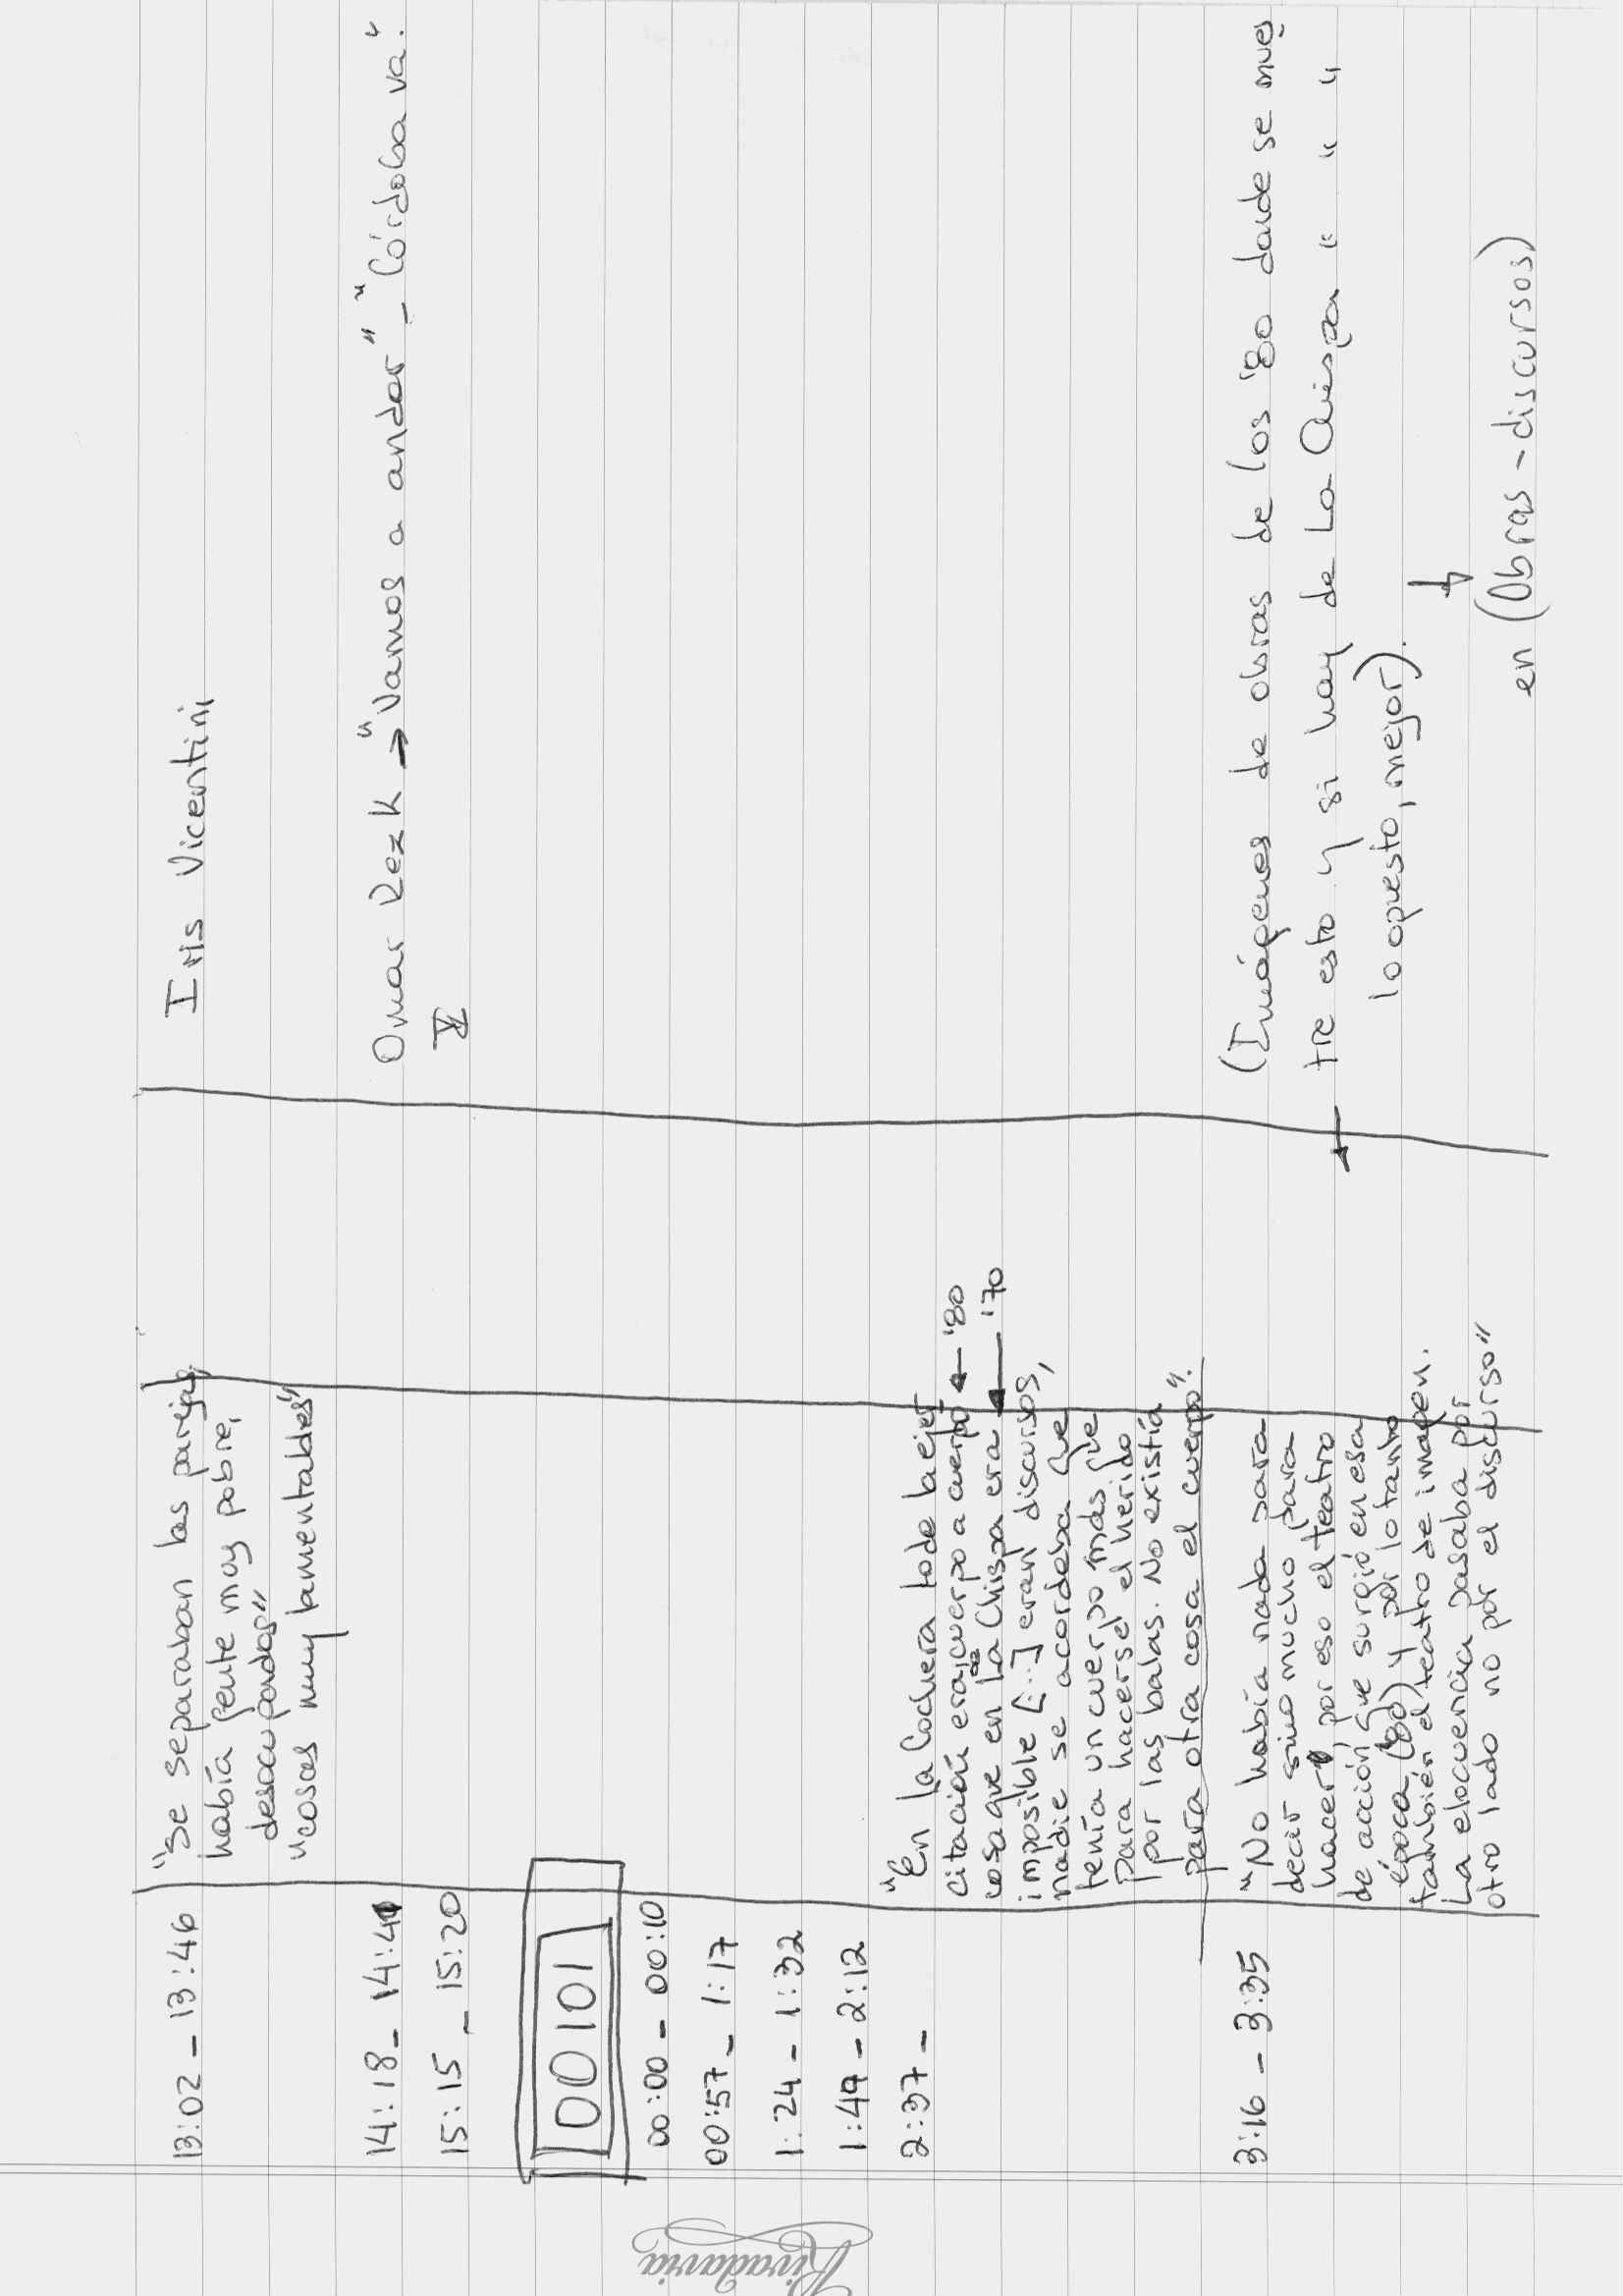 13:02 – 13:46
"Se separaban las parejas,
había gente muy pobre,
desocupados"
"cosas muy lamentables"
Iris Vicentini
14:18 – 14:41
Omar Rezk → "Vamos a andar" – "Córdoba va".
15:15 – 15:20
V
00101
00:00 – 00:10
00:57 – 1:17
1:24 – 1:32
1:49 – 2:12
2:37 –
"En la Cochera toda la ejer
citación era de cuerpo a cuerpo ← '80
cosa que en la Chispa era ← '70
imposible [...] eran discursos,
nadie se acordaba que
tenía un cuerpo más que
para hacerse el herido
por las balas. No existía
para otra cosa el cuerpo".
3:16 – 3:35
"No había nada para
decir sino mucho para
hacer, por eso el teatro
de acción que surgió en esa
época, ('80) y por lo tanto
también el teatro de imagen.
La elocuencia pasaba por
otro lado no por el discurso"
(Imágenes de obras de los '80 donde se mues
tre esto y si hay de La Chispa " " " "
lo opuesto, mejor).
↳
en (Obras – discursos)
Rivadavia